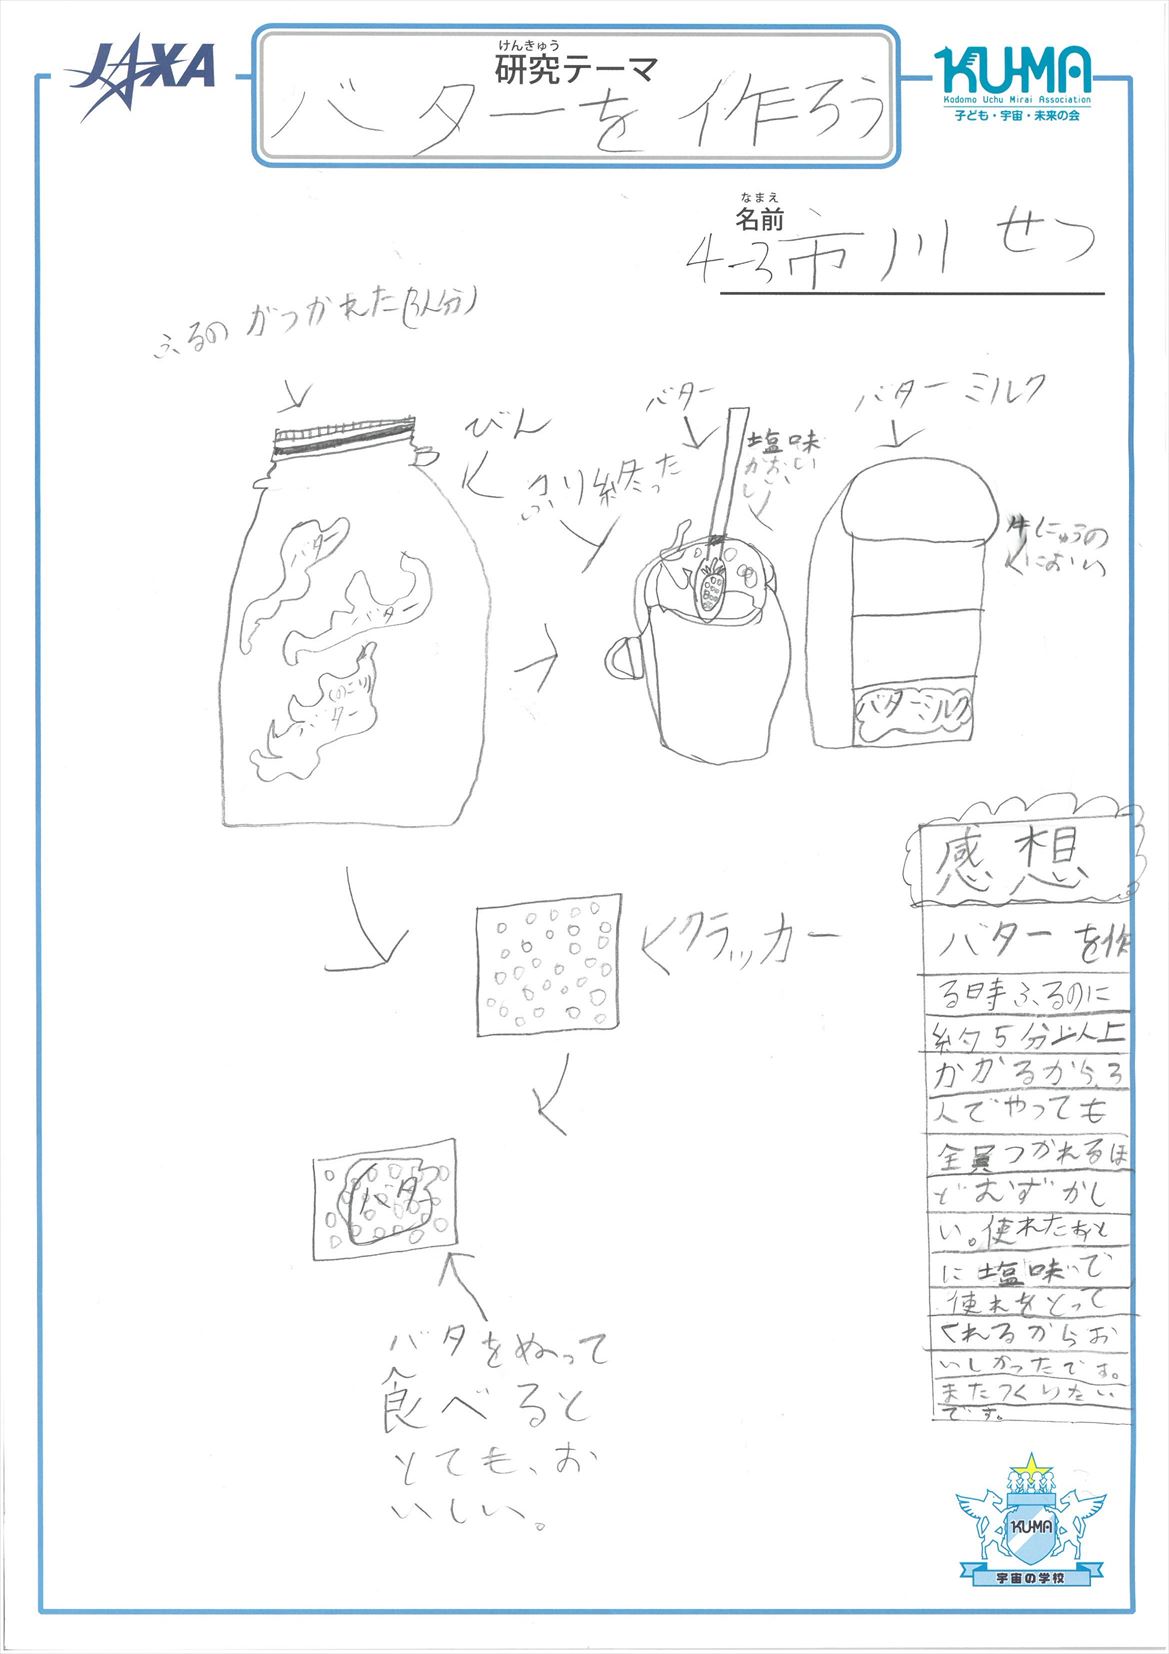 JAXA
けんきゅう
研究テーマ
バターを作ろう
KU-MA
Kodomo Uchu Mirai Association
子ども・宇宙・未来の会
なまえ
名前
4-3 市川 せつ
ふるのがつかれた(3人分)
びん
ふり終った
バター
塩味
がおい
し
い
バターミルク
牛にゅうの
におい
バター
バター
のこり
バター
バターミルク
クラッカー
バター
バタをぬって
食べると
とても、お
いしい。
感想
バターを作
る時ふるのに
約5分以上
かかるから、3
人でやっても
全員つかれるほ
どむずかし
い。使れたあと
に塩味で
使れをとって
くれるからお
いしかったです。
またつくりたい
です。
KU-MA
宇宙の学校